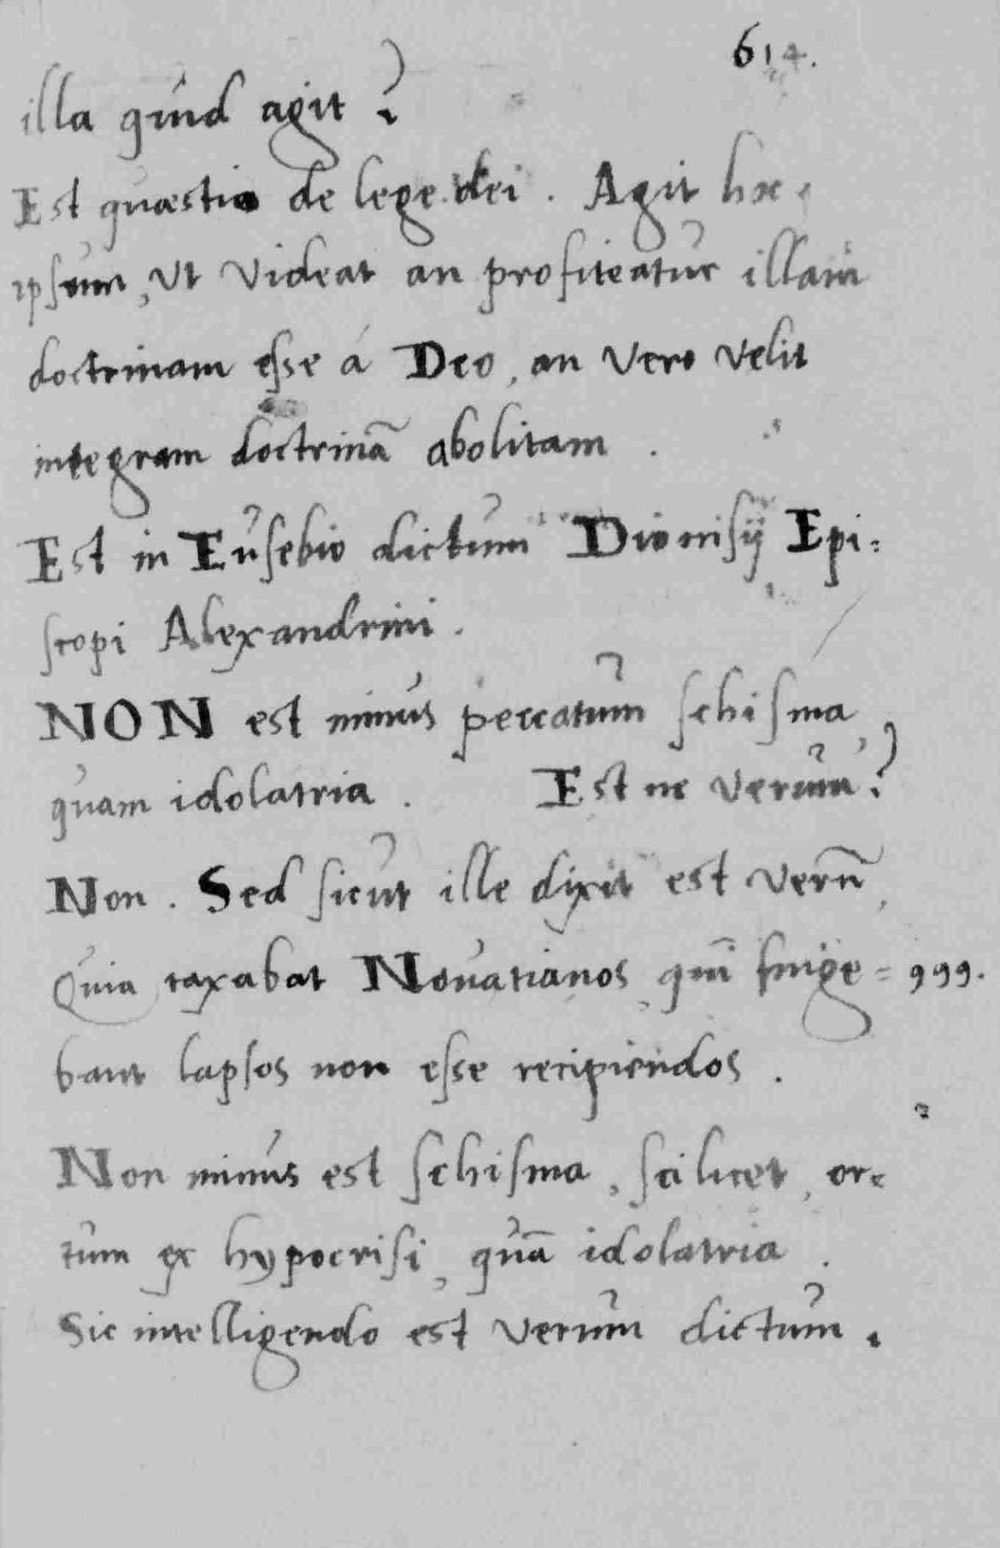 614.
illa quid agit?
Est quæstio de lege dei. Agit hæc
ipsum, Ut Videat an profiteatur illam
doctrinam esse á Deo, an Vero velit
integram doctrinā abolitam.
Est in Eusebio dictum Dionisij Epi=
scopi Alexandrini.
NON est minus peccatum schisma,
quam idolatria. Est ne verum?
Non. Sed sicut ille dixit est verū,
Quia taxabat Nouatianos qui finge= 999.
bant lapsos non esse recipiendos.
Non minus est schisma, scilicet, or=
tum ex hypocrisi, quā idolatria.
Sic intelligendo est verum dictum.